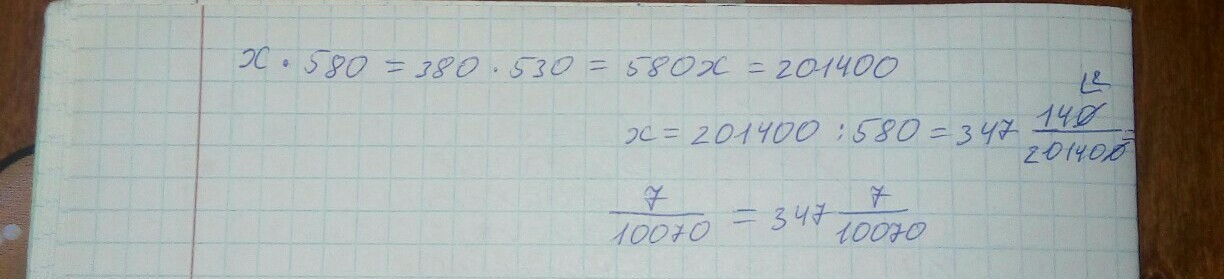 x · 580 = 380 · 530 = 580x = 201400
x = 201400 : 580 = 347 140/201400 =
7/10070 = 347 7/10070